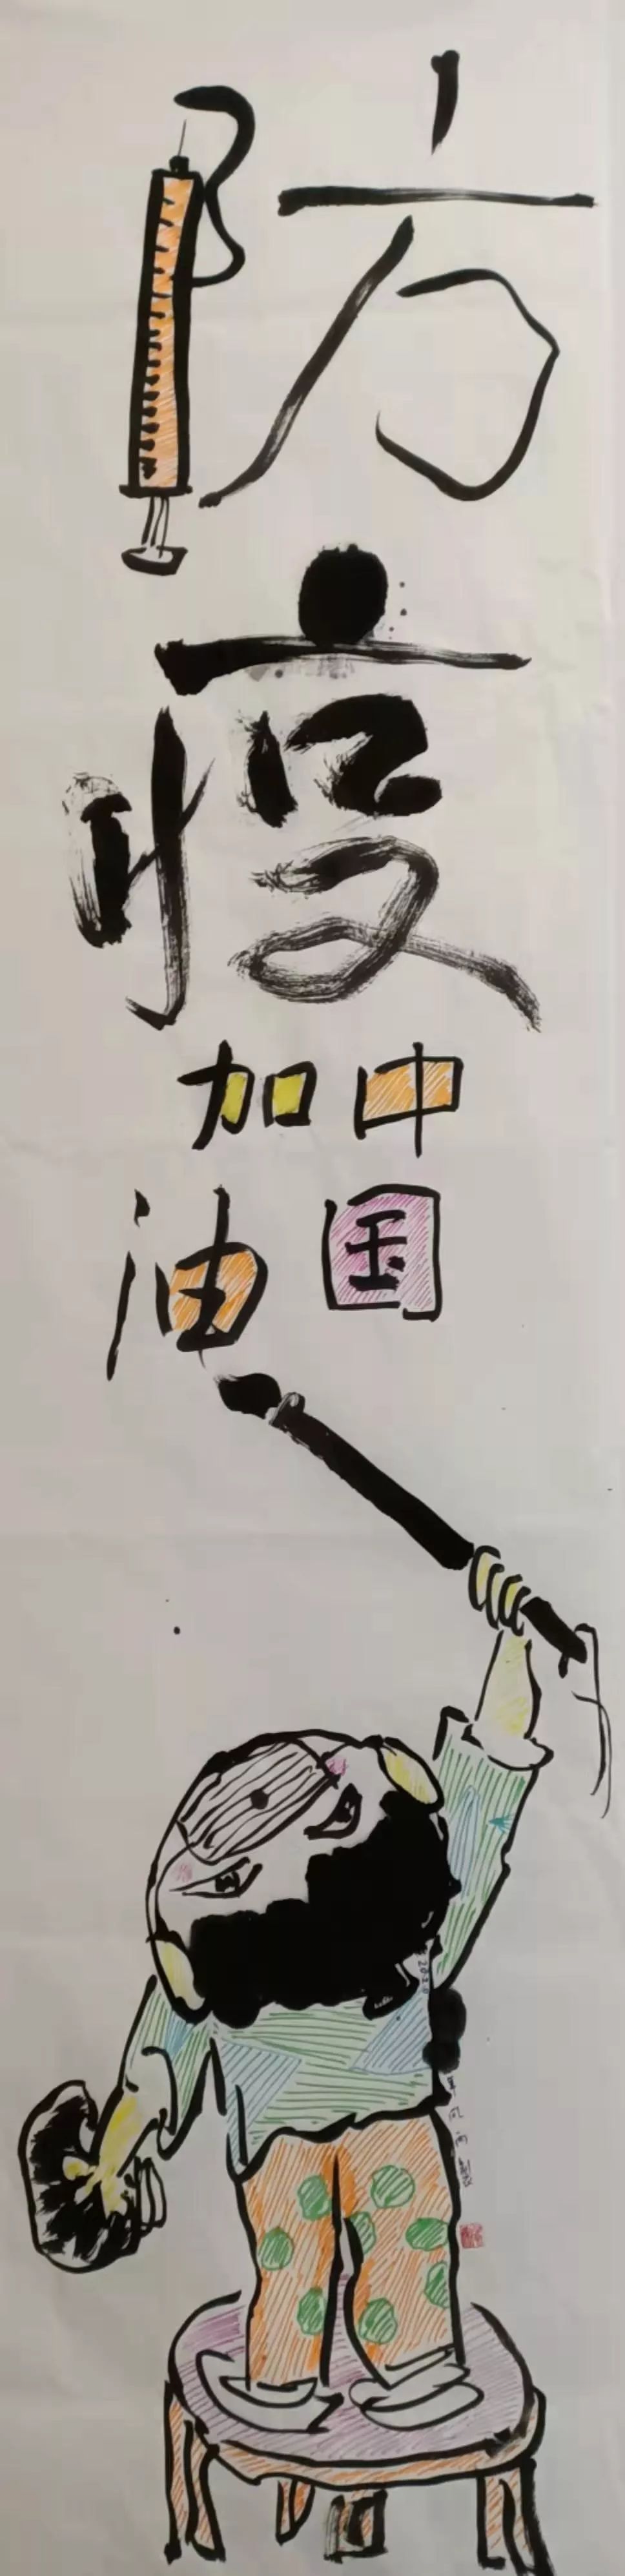 防疫
中国
加油
2020